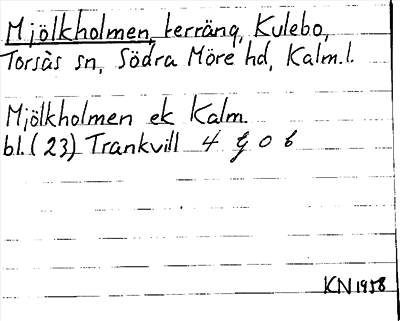 Mjölkholmen, terräng, Kulebo,
Torsås sn, Södra Möre hd, Kalm.l.
Mjölkholmen ek Kalm.
bl. (23) Trankvill 4 G 0 b
KN 1958